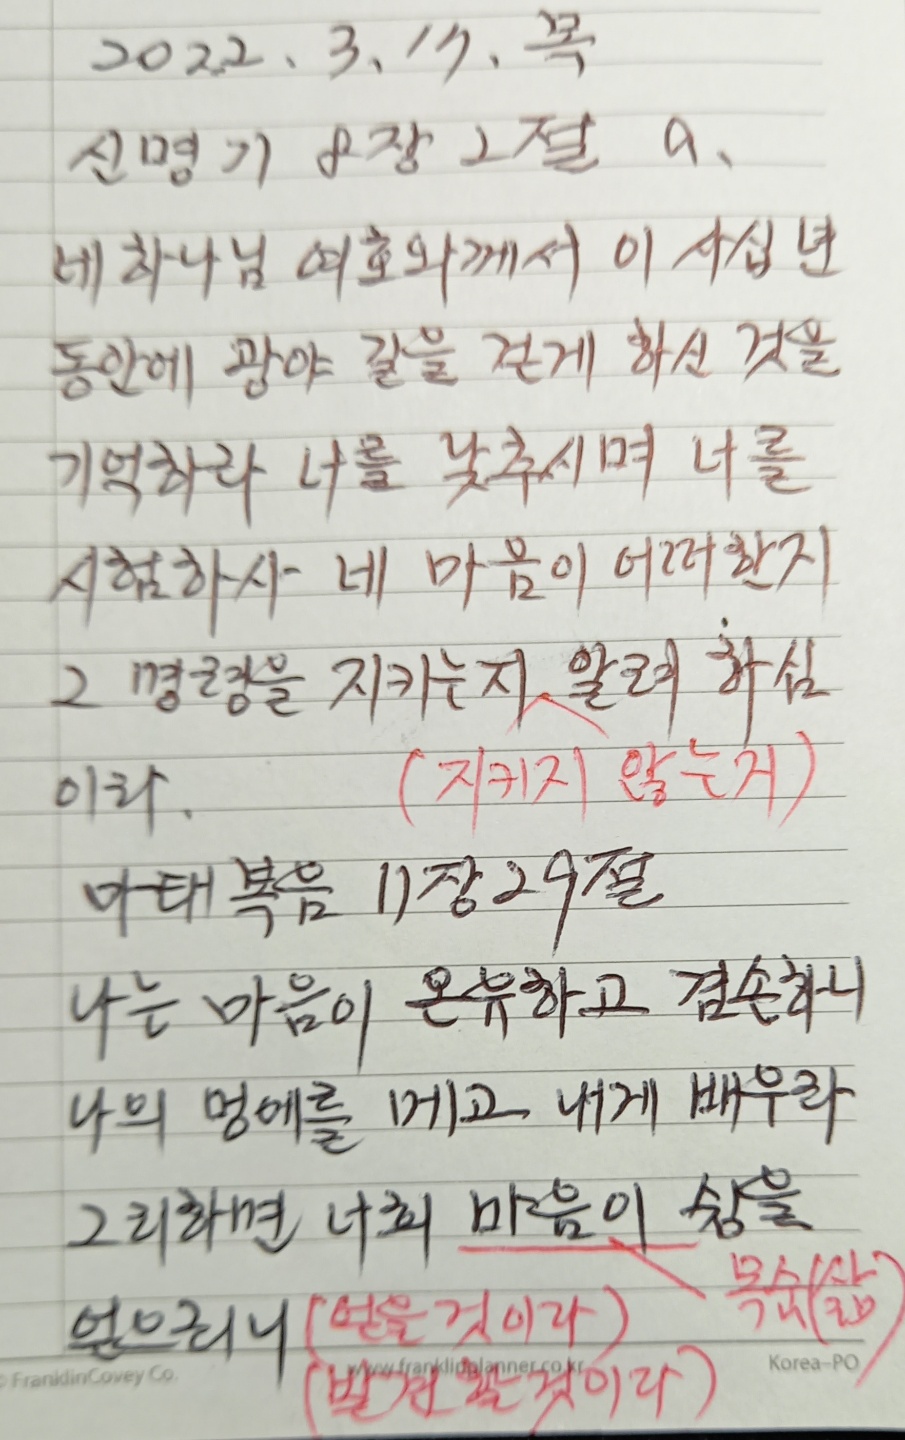 2022. 3. 17. 목
신명기 8장 2절 a.
네 하나님 여호와께서 이 사십 년
동안에 광야 길을 걷게 하신 것을
기억하라 너를 낮추시며 너를
시험하사 네 마음이 어떠한지
그 명령을 지키는지 알려 하심
(지키지 않는지)
이라.
마태복음 11장 29절
나는 마음이 온유하고 겸손하니
나의 멍에를 메고 내게 배우라
그리하면 너희 마음이 쉼을
목숨(삶)
얻으리니 (얻을 것이라)
(발견할 것이라)
FranklinCovey Co. www.franklinplanner.co.kr Korea-PO